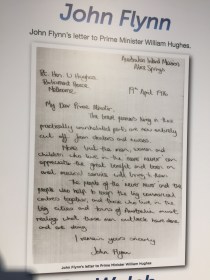 John Flynn
John Flynn's letter to Prime Minister William Hughes.
Australian Inland Mission
Alice Springs
Rt. Hon. W Hughes
Parliament House,
Melbourne.
19th April 1916
My Dear Prime Minister,
The lonely persons living in this
practically uninhabited part, are now entirely
cut off from doctors and nurses.
None but the men, women and
children who live in the never never can
appreciate the great benefit and them an
aerial medical service will bring to them.
The people of the never never and the
people who help to keep the big commercial
centres together, and those who live in the
big cities and towns of Australia must
realize what these men outback have done
and are doing.
I remain yours sincerely
John Flynn
John Flynn's letter to Prime Minister William Hughes.